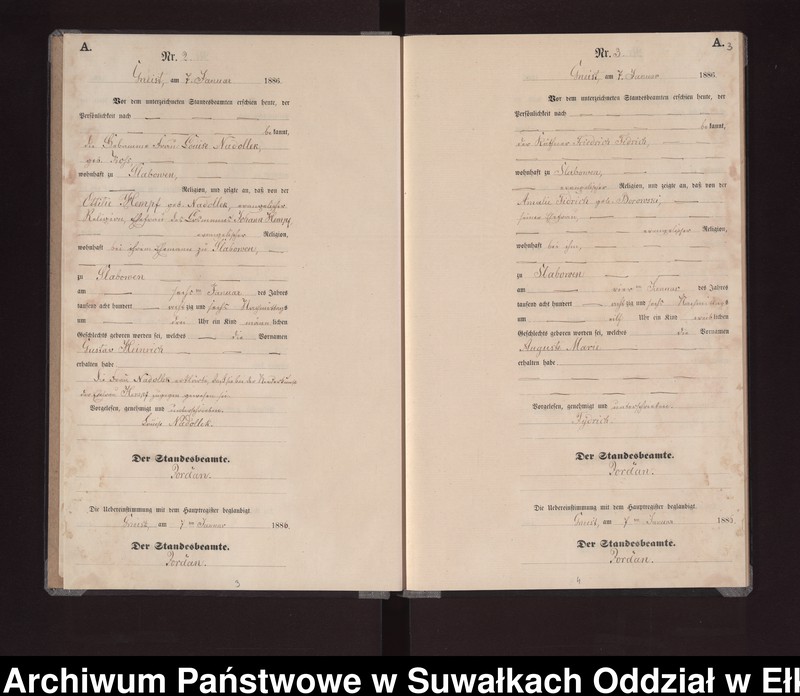 A.
Nr. 2
Gneist, am 7. Januar 1886.
Vor dem unterzeichneten Standesbeamten erschien heute, der
Persönlichkeit nach
bekannt,
die Hebamme Frau Louise Nadollek,
geb.
wohnhaft zu Slabowen,
Religion, und zeigte an, daß von der
Ottilie Kempf geb. Nadollek, evangelischer
Religion, Ehefrau des Losmanns Johann Kempf
evangelischer Religion,
wohnhaft bei ihrem Ehemanne zu Slabowen,
zu Slabowen
am sechsten Januar des Jahres
tausend acht hundert achtzig und sechs Nachmittags
um drei Uhr ein Kind männlichen
Geschlechts geboren worden sei, welches die Vornamen
Gustav Heinrich
erhalten habe
Die Frau Nadollek erklärte, daß sie bei der Niederkunft
der Kempf zugegen gewesen sei
Vorgelesen, genehmigt und unterschrieben.
Louise Nadollek.
Der Standesbeamte.
Jordan.
Die Uebereinstimmung mit dem Hauptregister beglaubigt.
Gneist, am 7ten Januar 1886
Der Standesbeamte.
Jordan.
3
A.
3
Nr. 3.
Gneist, am 7. Januar 1886.
Vor dem unterzeichneten Standesbeamten erschien heute, der
Persönlichkeit nach
bekannt,
der Käthner Friedrich
wohnhaft zu Slabowen,
evangelischer Religion, und zeigte an, daß von der
Amalie geb.
seiner Ehefrau,
evangelischer Religion,
wohnhaft bei ihm,
zu Slabowen
am vierten Januar des Jahres
tausend acht hundert achtzig und sechs Nachmittags
um elf Uhr ein Kind weiblichen
Geschlechts geboren worden sei, welches die Vornamen
Auguste Marie
erhalten habe
Vorgelesen, genehmigt und unterschrieben.
Fydrich.
Der Standesbeamte.
Jordan.
Die Uebereinstimmung mit dem Hauptregister beglaubigt.
Gneist, am 7ten Januar 188
Der Standesbeamte.
Jordan.
4
Archiwum Państwowe w Suwałkach Oddział w Eł